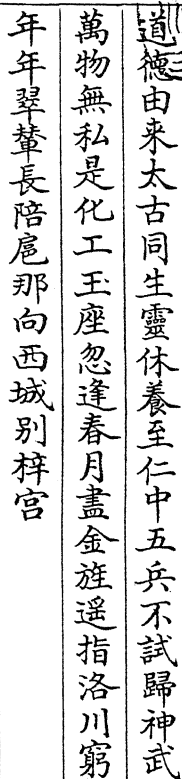 道德由来太古同生靈休養至仁中五兵不試歸神武
萬物無私是化工玉座忽逢春月盡金旌遥指洛川窮
年年翠輦長陪扈那向西城别梓宫